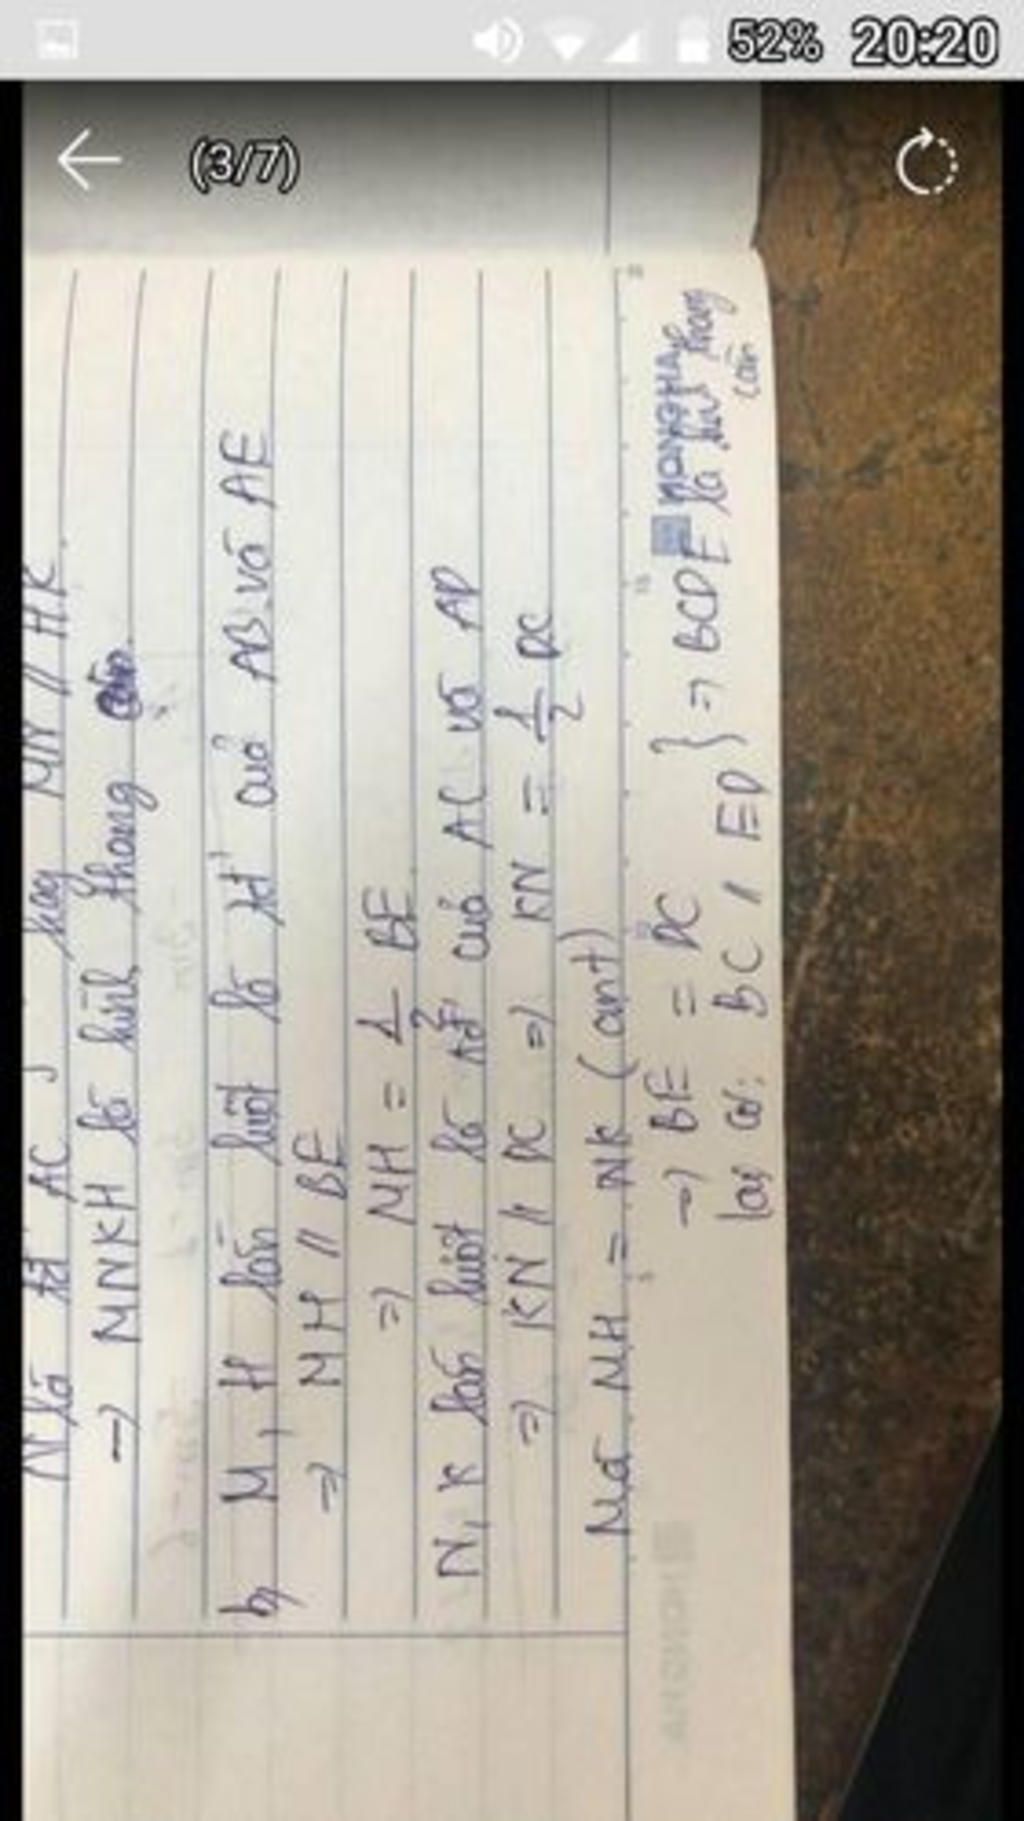 52% 20:20
(3/7)
N là tđ AC MN // HK.
→ MNKH là hình thang
b, M, H lần lượt là tđ của AB và AE
⇒ MH // BE
⇒ MH = 1/2 BE
N, K lần lượt là tđ của AC và AD
⇒ KN // DC ⇒ KN = 1/2 DC
Mà MH = NK (cmt)
→ BE = DC
lại có: BC // ED } → BCDE là hình thang cân
HONGHA